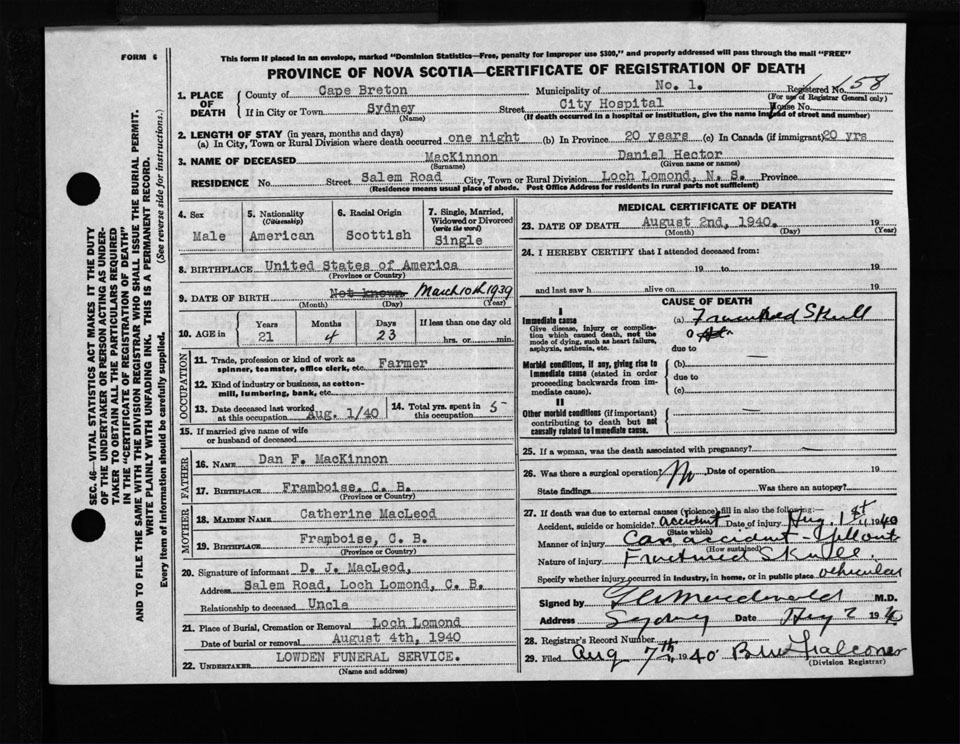 FORM 6
This form if placed in an envelope, marked "Dominion Statistics—Free, penalty for improper use $300," and properly addressed will pass through the mail "FREE"
PROVINCE OF NOVA SCOTIA—CERTIFICATE OF REGISTRATION OF DEATH
SEC. 46—VITAL STATISTICS ACT MAKES IT THE DUTY
OF THE UNDERTAKER OR PERSON ACTING AS UNDER-
TAKER TO OBTAIN ALL THE PARTICULARS REQUIRED
IN THE "CERTIFICATE OF REGISTRATION OF DEATH"
AND TO FILE THE SAME WITH THE DIVISION REGISTRAR WHO SHALL ISSUE THE BURIAL PERMIT.
WRITE PLAINLY WITH UNFADING INK. THIS IS A PERMANENT RECORD.
Every item of information should be carefully supplied. (See reverse side for instructions.)
1. PLACE OF DEATH
County of Cape Breton Municipality of No. 1. Registered No. 158
(For use of Registrar General only)
If in City or Town Sydney Street City Hospital House No.
(Name) (If death occurred in a hospital or institution, give the name instead of street and number)
2. LENGTH OF STAY (in years, months and days)
(a) In City, Town or Rural Division where death occurred one night (b) In Province 20 years (c) In Canada (if immigrant) 20 yrs
3. NAME OF DECEASED MacKinnon Daniel Hector
(Surname) (Given name or names)
RESIDENCE No. Street Salem Road City, Town or Rural Division Loch Lomond, N. S. Province
(Residence means usual place of abode. Post Office Address for residents in rural parts not sufficient)
4. Sex
Male
5. Nationality
(Citizenship)
American
6. Racial Origin
Scottish
7. Single, Married,
Widowed or Divorced
(write the word)
Single
8. BIRTHPLACE United States of America
(Province or Country)
9. DATE OF BIRTH Not known March 10th 1939
(Month) (Day) (Year)
10. AGE in
Years Months Days If less than one day old
21 4 23 hrs. or min.
OCCUPATION
11. Trade, profession or kind of work as
spinner, teamster, office clerk, etc. Farmer
12. Kind of industry or business, as cotton-
mill, lumbering, bank, etc.
13. Date deceased last worked
at this occupation Aug. 1/40
14. Total yrs. spent in
this occupation 5
15. If married give name of wife
or husband of deceased
FATHER
16. NAME Dan F. MacKinnon
17. BIRTHPLACE Framboise, C. B.
(Province or Country)
MOTHER
18. MAIDEN NAME Catherine MacLeod
19. BIRTHPLACE Framboise, C. B.
(Province or Country)
20. Signature of informant D. J. MacLeod,
Address Salem Road, Loch Lomond, C. B.
Relationship to deceased Uncle
21. Place of Burial, Cremation or Removal Loch Lomond
Date of burial or removal August 4th, 1940
22. UNDERTAKER LOWDEN FUNERAL SERVICE.
(Name and address)
MEDICAL CERTIFICATE OF DEATH
23. DATE OF DEATH August 2nd, 1940. 19
(Month) (Day) (Year)
24. I HEREBY CERTIFY that I attended deceased from:
19 to 19
and last saw h alive on 19
CAUSE OF DEATH
I
Immediate cause
Give disease, injury or complica-
tion which caused death, not the
mode of dying, such as heart failure,
asphyxia, asthenia, etc.
(a) Fractured Skull
due to
Morbid conditions, if any, giving rise to
immediate cause (stated in order
proceeding backwards from im-
mediate cause).
(b)
due to
(c)
II
Other morbid conditions (if important)
contributing to death but not
causally related to immediate cause.
25. If a woman, was the death associated with pregnancy?
26. Was there a surgical operation? No Date of operation 19
State findings Was there an autopsy?
27. If death was due to external causes (violence) fill in also the following:—
Accident, suicide or homicide? accident Date of injury Aug. 1st, 1940
(State which)
Manner of injury Car accident —
(How sustained)
Nature of injury Fractured Skull.
Specify whether injury occurred in industry, in home, or in public place vehicular
Signed by Macdonald M.D.
Address Sydney Date Aug 2 1940
28. Registrar's Record Number
29. Filed Aug 7th, 1940 Falconer
(Division Registrar)